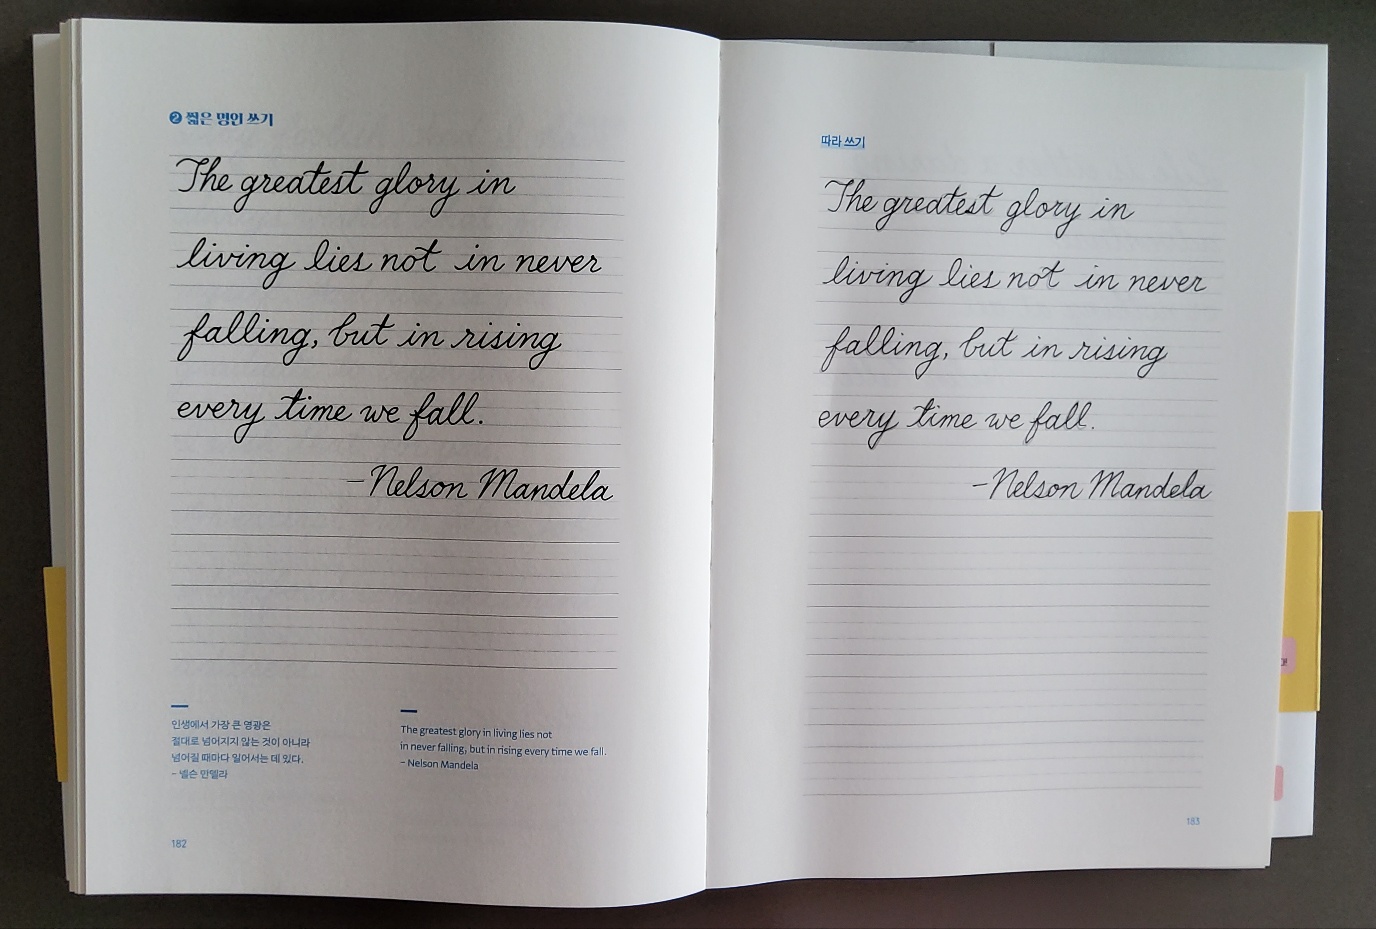 ❷ 짧은 명언 쓰기
The greatest glory in
living lies not in never
falling, but in rising
every time we fall.
-Nelson Mandela
인생에서 가장 큰 영광은
절대로 넘어지지 않는 것이 아니라
넘어질 때마다 일어서는 데 있다.
- 넬슨 만델라
The greatest glory in living lies not
in never falling, but in rising every time we fall.
- Nelson Mandela
182
따라 쓰기
The greatest glory in
living lies not in never
falling, but in rising
every time we fall.
-Nelson Mandela
183